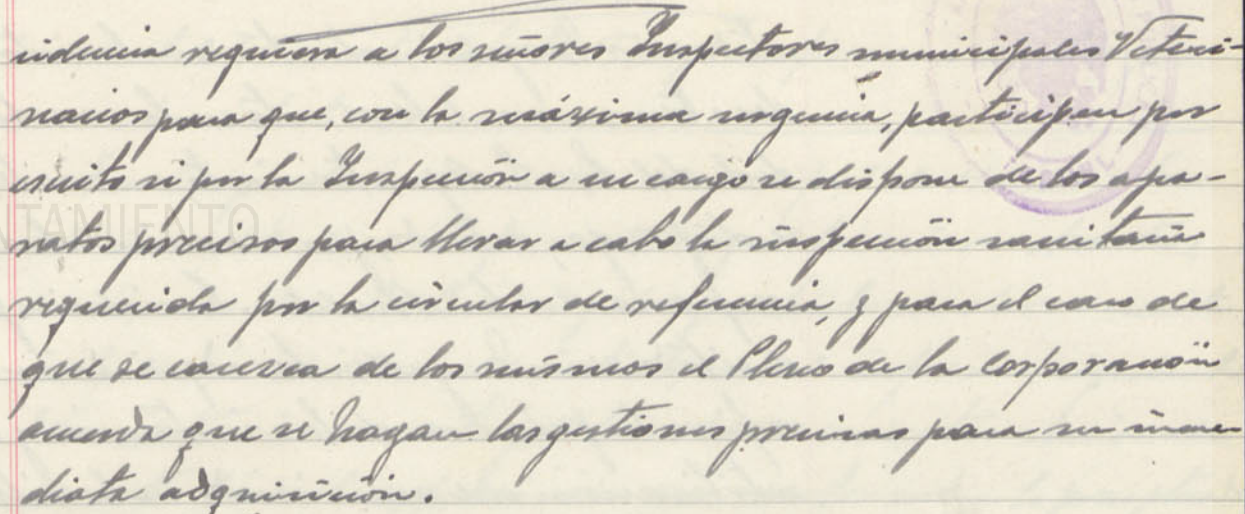 sidencia requiera a los señores Inspectores municipales Veteri-
narios para que, con la máxima urgencia, participen por
escrito si por la Inspección a su cargo se dispone de los apa-
ratos precisos para llevar a cabo la inspección sanitaria
requerida por la circular de referencia, y para el caso de
que se carezca de los mismos el Pleno de la Corporación
acuerda que se hagan las gestiones precisas para su inme-
diata adquisición.
TAMIENTO